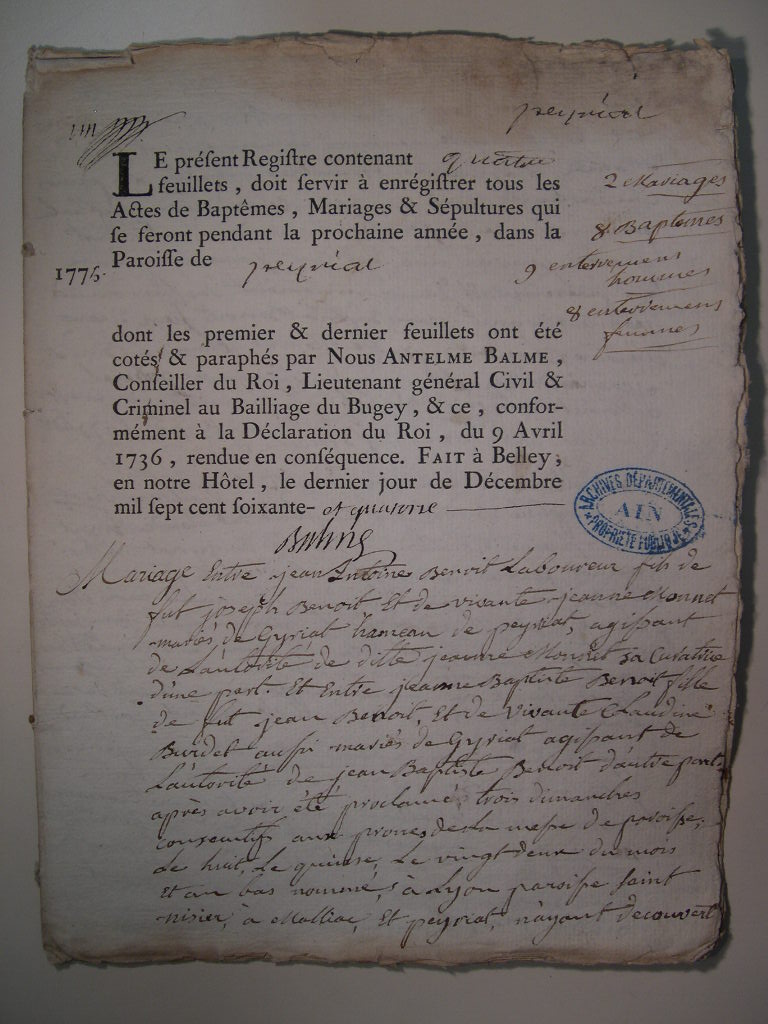 peyriat
un
LE préſent Regiſtre contenant quatre
feuillets, doit ſervir à enrégiſtrer tous les
Actes de Baptêmes, Mariages & Sépultures qui
ſe feront pendant la prochaine année, dans la
Paroiſſe de peyriat
1775.
2 Mariages
8 Baptemes
9 enterremens
hommes
8 enterremens
femmes
dont les premier & dernier feuillets ont été
cotés & paraphés par Nous ANTELME BALME,
Conſeiller du Roi, Lieutenant général Civil &
Criminel au Bailliage du Bugey, & ce, confor-
mément à la Déclaration du Roi, du 9 Avril
1736, rendue en conſéquence. FAIT à Belley,
en notre Hôtel, le dernier jour de Décembre
mil ſept cent ſoixante- et quatorze
Balme
ARCHIVES DÉPARTEMENTALES
AIN
PROPRIÉTÉ PUBLIQUE
Mariage Entre jean Antoine Benoit Laboureur fils de
fut joseph Benoit, Et de vivante jeanne Monnet
mariés de Gyriat hameau de peyriat, agissant
de L'autorité de ditte jeanne Monnet sa Curatrice
d'une part. Et Entre jeanne Baptiste Benoit fille
de fut jean Benoit, Et de vivante Claudine
Burdet aussi mariés de Gyriat agissant de
L'autorité de jean Baptiste Benoit d'autre part.
après avoir été proclamés trois dimanches
consecutifs aux prones de La messe de paroisse,
Le huit, Le quinse, Le vingt deux du mois
Et an bas nommé, à Lyon paroisse saint
nisier, à Malliac, Et peyriat, n'ayant decouvert